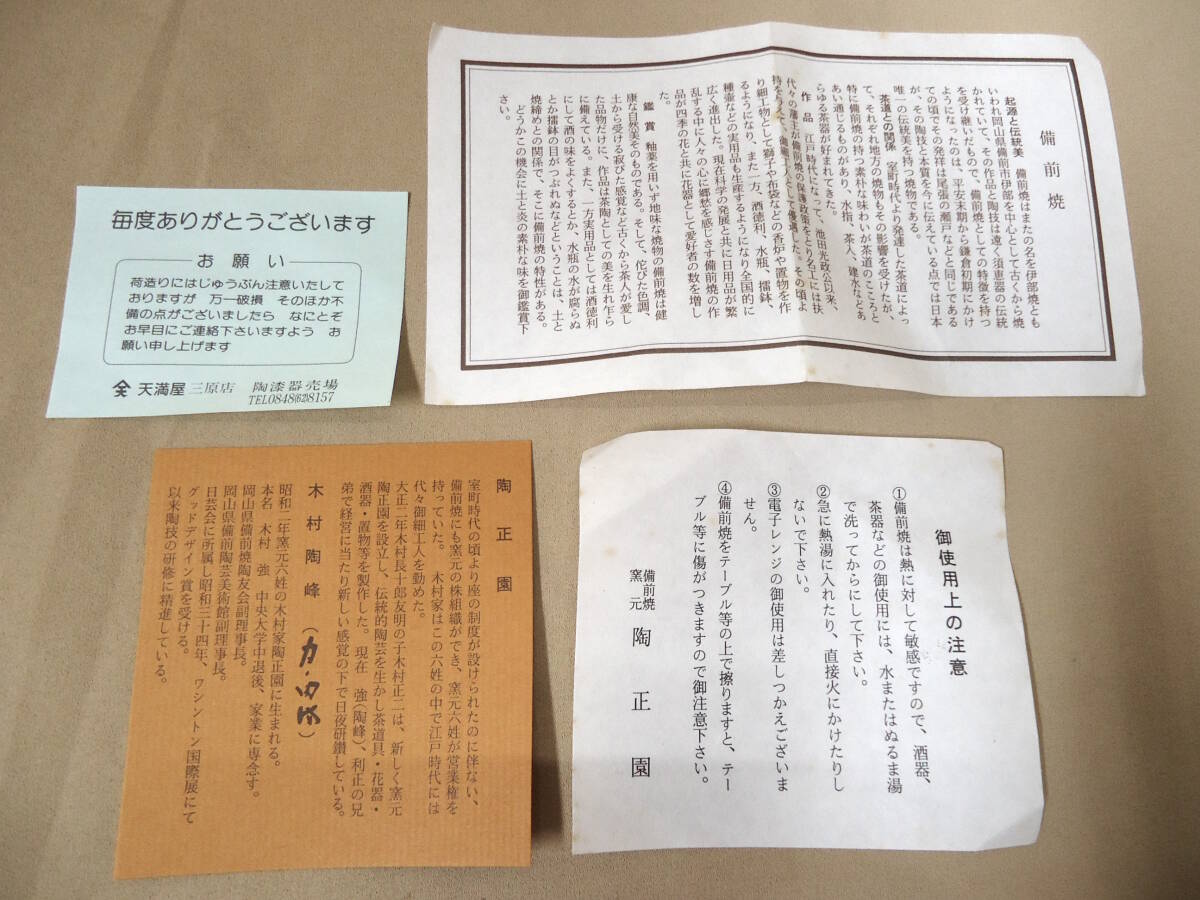 毎度ありがとうございます
お願い
荷造りにはじゅうぶん注意いたして
おりますが 万一破損 そのほか不
備の点がございましたら なにとぞ
お早目にご連絡下さいますよう お
願い申し上げます
天満屋 三原店 陶漆器売場
TEL0848(62)8157
備前焼
起源と伝統美 備前焼はまたの名を伊部焼とも
いわれ岡山県備前市伊部を中心として古くから焼
かれていて、その作品と陶技は遠く須恵器の伝統
を受け継いだもので、備前焼としての特徴を持つ
ようになったのは、平安末期から鎌倉初期にかけ
ての頃でその発祥は尾張の瀬戸などと同じである
が、その陶技と本質を今に伝えている点では日本
唯一の伝統美を持つ焼物である。
茶道との関係 室町時代より発達した茶道によっ
て、それぞれ地方の焼物もその影響を受けたが、
特に備前焼の持つ素朴な味わいが茶道のこころと
あい通じるものがあり、水指、茶入、建水などあ
らゆる茶器が好まれてきた。
作品 江戸時代になって、池田光政公以来、
代々の藩主が備前焼の保護政策をとり名工には扶
持を与えて、御細工人として優遇した。その頃よ
り細工物として獅子や布袋などの香炉や置物を作
るようになり、また一方、酒徳利、水瓶、擂鉢、
種壷などの実用品も生産するようになり全国的に
広く進出した。現在科学の発展と共に日用品が繁
乱する中に人々の心に郷愁を感じさす備前焼の作
品が四季の花と共に花器として愛好者の数を増し
た。
鑑賞 釉薬を用いず地味な焼物の備前焼は健
康な自然美そのものである。そして、侘びた色調、
土から受ける寂びた感覚など古くから茶人が愛し
た品物だけに、作品は茶陶としての美を生れ乍ら
に備えている。また、一方実用品としては酒徳利
にして酒の味をよくするとか、水瓶の水が腐らぬ
とか擂鉢の目がつぶれぬなどということは、土と
焼締めとの関係で、そこに備前焼の特性がある。
どうかこの機会に土と炎の素朴な味を御鑑賞下
さい。
陶正園
室町時代の頃より座の制度が設けられたのに伴ない、
備前焼にも窯元の株組織ができ、窯元六姓が営業権を
持っていた。 木村家はこの六姓の中で江戸時代には
代々御細工人を勤めた。
大正二年木村長十郎友明の子木村正二は、新しく窯元
陶正園を設立し、伝統的陶芸を生かし茶道具・花器・
酒器・置物等を製作した。現在 強(陶峰)、利正の兄
弟で経営に当たり新しい感覚の下で日夜研鑽している。
木村陶峰
昭和二年窯元六姓の木村家陶正園に生まれる。
本名 木村 強 中央大学中退後、家業に専念す。
岡山県備前焼陶友会副理事長。
岡山県備前陶芸美術館副理事長。
日芸会に所属し昭和三十四年、ワシントン国際展にて
グッドデザイン賞を受ける。
以来陶技の研修に精進している。
御使用上の注意
①備前焼は熱に対して敏感ですので、酒器、
茶器などの御使用には、水またはぬるま湯
で洗ってからにして下さい。
②急に熱湯に入れたり、直接火にかけたりし
ないで下さい。
③電子レンジの御使用は差しつかえございま
せん。
④備前焼をテーブル等の上で擦りますと、テー
ブル等に傷がつきますので御注意下さい。
備前焼
窯元 陶正園